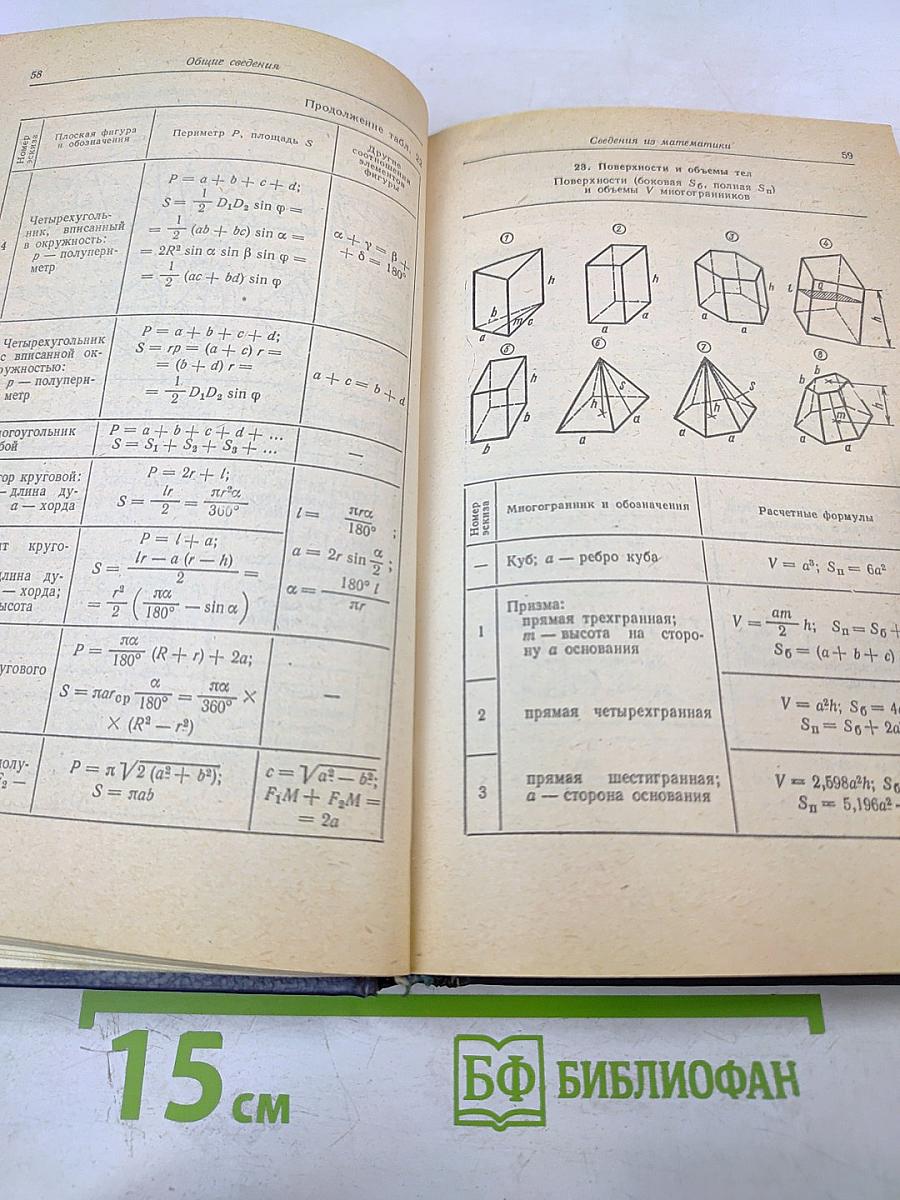 58
Общие сведения
Продолжение табл. 22
Номер эскиза
Плоская фигура
и обозначения
Периметр P, площадь S
Другие
соотношения
элементов
фигуры
4
Четырехуголь-
ник, вписанный
в окружность:
p — полупери-
метр
P = a + b + c + d;
S = 1/2 D₁D₂ sin φ =
= 1/2 (ab + bc) sin α =
= 2R² sin α sin β sin φ =
= 1/2 (ac + bd) sin φ
α + γ = β +
+ δ = 180°
Четырехугольник
с вписанной ок-
ружностью:
p — полупери-
метр
P = a + b + c + d;
S = rp = (a + c) r =
= (b + d) r =
= 1/2 D₁D₂ sin φ
a + c = b + d
ногоугольник
бой
P = a + b + c + d + ...
S = S₁ + S₂ + S₃ + ...
—
тор круговой:
— длина ду-
a — хорда
P = 2r + l;
S = lr/2 = πr²α/360°
l = πrα/180°;
a = 2r sin α/2;
α = 180° l/πr
нт круго-
длина ду-
— хорда;
ысота
P = l + a;
S = lr — a (r — h)/2 =
= r²/2 (πα/180° — sin α)
угового
P = πα/180° (R + r) + 2a;
S = παrср α/180° = πα/360° ×
× (R² — r²)
—
полу-
F₂ —
P = π √2 (a² + b²);
S = πab
c = √a² — b²;
F₁M + F₂M =
= 2a
Сведения из математики
59
23. Поверхности и объемы тел
Поверхности (боковая Sб, полная Sп)
и объемы V многогранников
1
2
3
4
h
b
m
c
a
h
a
a
h
a
a
l
Q
h
5
6
7
8
h
b
b
h
s
a
a
h
s
a
a
b
b
h
m
a
a
Номер эскиза
Многогранник и обозначения
Расчетные формулы
—
Куб; a — ребро куба
V = a³; Sп = 6a²
1
Призма:
прямая трехгранная;
m — высота на сторо-
ну a основания
V = am/2 h; Sп = Sб +
Sб = (a + b + c)
2
прямая четырехгранная
V = a²h; Sб = 4
Sп = Sб + 2a
3
прямая шестигранная;
a — сторона основания
V = 2,598a²h; Sб
Sп = 5,196a²
15 см
БФ БИБЛИОФАН